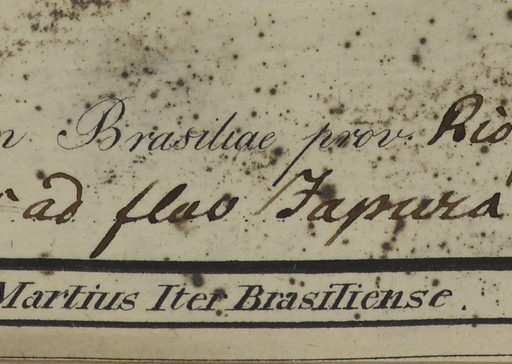 n Brasiliae prov. Rio
ad fluv Japura
Martius Iter Brasiliense.